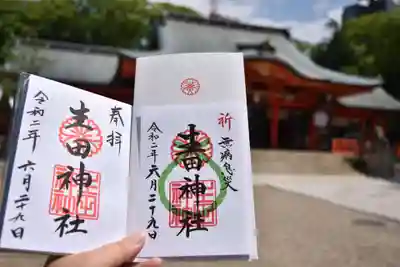 奉拝
生田神社
令和二年
六月二十九日
祈
無病息災
生田神社
令和二年六月二十九日